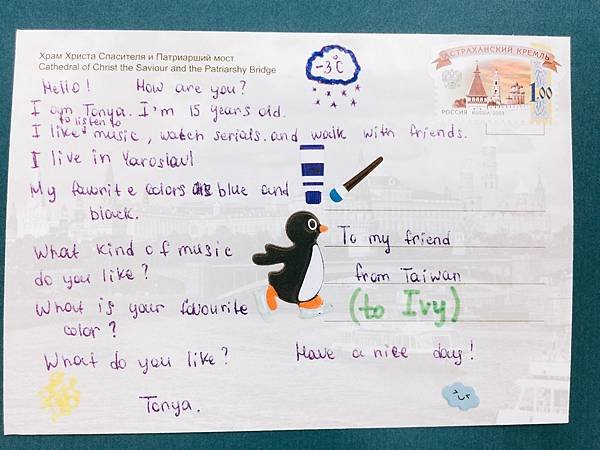 Храм Христа Спасителя и Патриарший мост
Cathedral of Christ the Saviour and the Patriarshy Bridge
-3°C
АСТРАХАНСКИЙ КРЕМЛЬ
1.00
РОССИЯ RUSSIA 2009
Hello! How are you?
I am Tonya. I'm 15 years old.
to listen to
I like music, watch serials. and walk with friends.
I live in Yaroslavl
My favorite colors are blue and
black.
What kind of music
do you like?
What is your favourite
color?
What do you like?
Tonya.
To my friend
from Taiwan
(to Ivy)
Have a nice day!